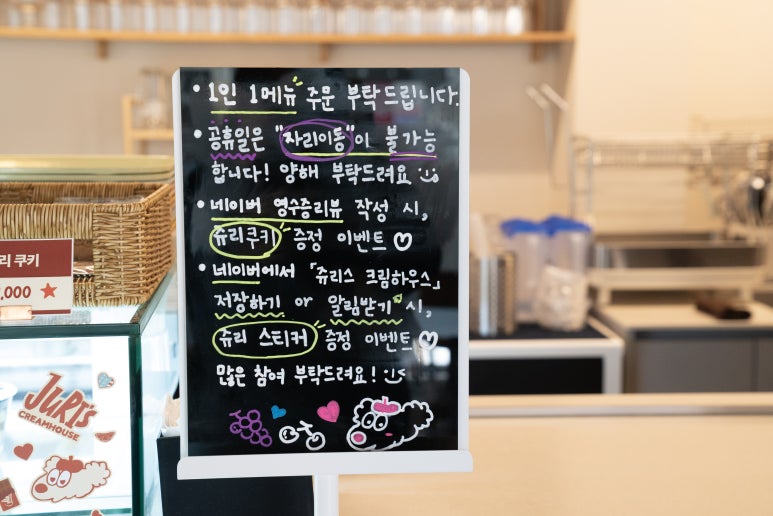 • 1인 1메뉴 주문 부탁드립니다.
• 공휴일은 "자리이동"이 불가능
합니다! 양해 부탁드려요
• 네이버 영수증리뷰 작성 시,
쥬리쿠키 증정 이벤트♡
• 네이버에서 「쥬리스 크림하우스」
저장하기 or 알림받기 시,
쥬리 스티커 증정 이벤트♡
많은 참여 부탁드려요!
리 쿠키
,000 ★
JURI'S
CREAMHOUSE